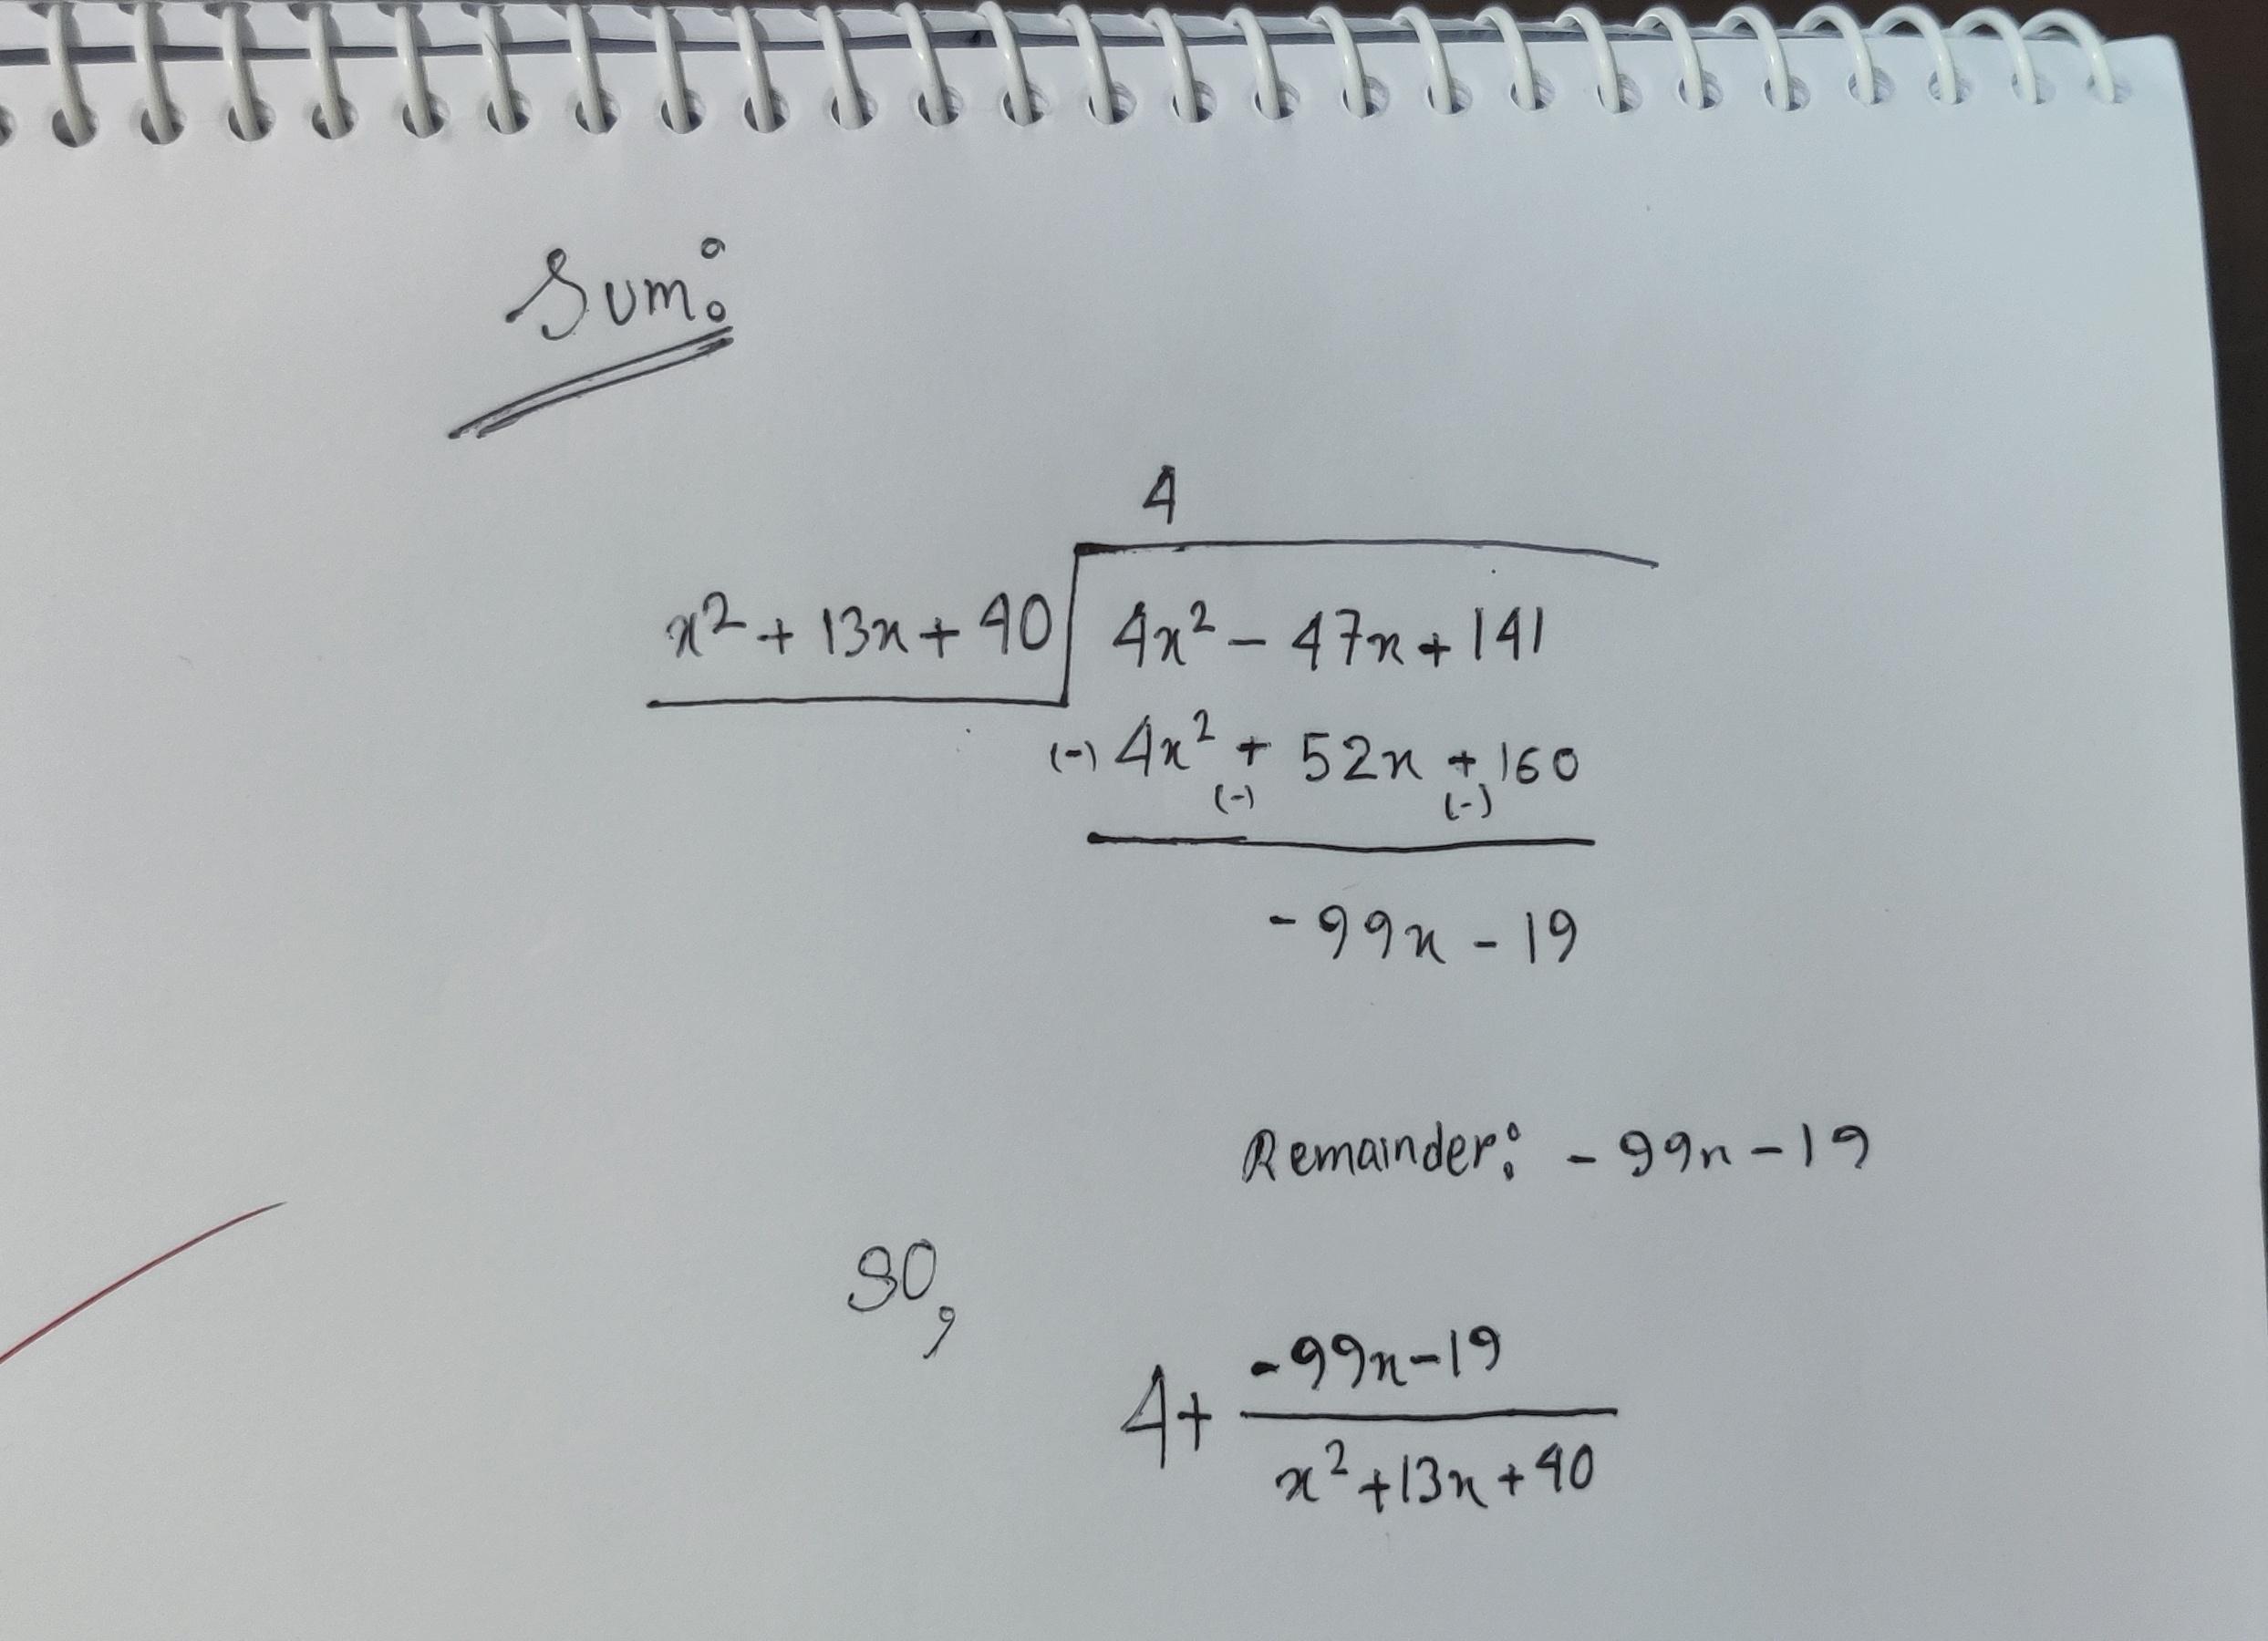 Sum:
4
x² + 13x + 40 4x² - 47x + 141
(-) 4x² + 52x + 160
(-) (-)
- 99x - 19
Remainder: - 99x - 19
SO,
4 + -99x-19
x² + 13x + 40